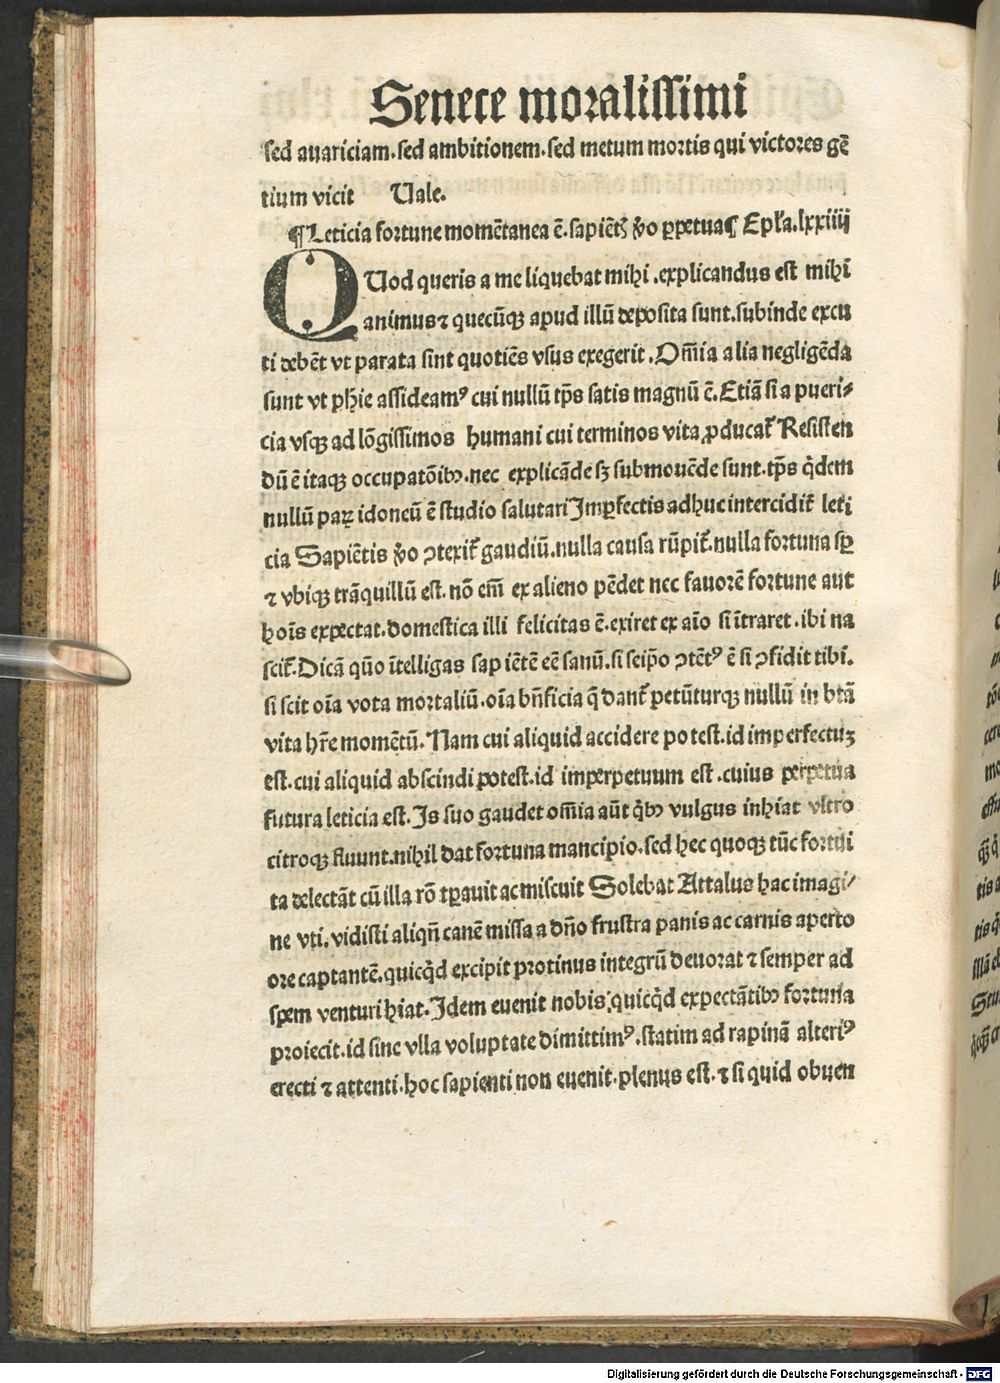 Senece moralissimi
sed auariciam.sed ambitionem.sed metum mortis qui victores gē
tium vicit Uale.
¶Leticia fortune momētanea ē.sapiētꝭ v̆o ꝑpetua¶ Epl'a.lxxiiij
QUod queris a me liquebat mihi .explicandus est mihi
animusꝛ quecūqꝫ apud illū deposita sunt.subinde excu
ti debēt vt parata sint quotiēs vsus exegerit .Om̄ia alia negligēda
sunt vt ph̄ie assideamꝰ cui nullū tp̄s satis magnū ē.Etiā si a pueri⸗
cia vsqꝫ ad lōgissimos humani cui terminos vita ꝓducat̄ Resisten
dū ē itaqꝫ occupatōibꝫ.nec explicāde sꝫ submouēde sunt.tp̄s q̄dem
nullū paꝝ idoneū ē studio salutari Imꝑfectis adhuc intercidit̄ leti
cia Sapiētis v̆o ꝯtexit̄ gaudiū.nulla causa rūpit̄.nulla fortuna sꝑ
ꝛ vbiqꝫ trāquillū est.nō em̄ ex alieno pēdet nec fauorē fortune aut
hoīs expectat.domestica illi felicitas ē.exiret ex aīo si ītraret .ibi na
scit̄.Dicā qūo ītelligas sapiētē eē sanū.si seip̄o ꝯtētꝰ ē si ꝯfidit tibi.
si scit oīa vota mortaliū.oīa bn̄ficia q̄ dant̄ petūturqꝫ nullū in btā
vita hr̄e momētū.Nam cui aliquid accidere potest.id imperfectuꝫ
est.cui aliquid abscindi potest.id imperpetuum est .cuius perpetua
futura leticia est.Is suo gaudet om̄ia aūt q̄bꝫ vulgus inhiat vltro
citroqꝫ fluunt.nihil dat fortuna mancipio.sed hec quoqꝫ tūc fortui
ta delectāt cū illa rō tꝑauit ac miscuit Solebat Attalus hac imagi⸗
ne vti.vidisti aliqn̄ canē missa a dn̄o frustra panis ac carnis aperto
ore captantē.quicq̄d excipit protinus integrū deuorat ꝛ semper ad
spem venturi hiat.Idem euenit nobis;quicq̄d expectātibꝫ fortuna
proiecit.id sine vlla voluptate dimittimꝰ.statim ad rapinā alteriꝰ
erecti ꝛ attenti.hoc sapienti non euenit.plenus est.ꝛ si quid obuen
Digitalisierung gefördert durch die Deutsche Forschungsgemeinschaft - DFG